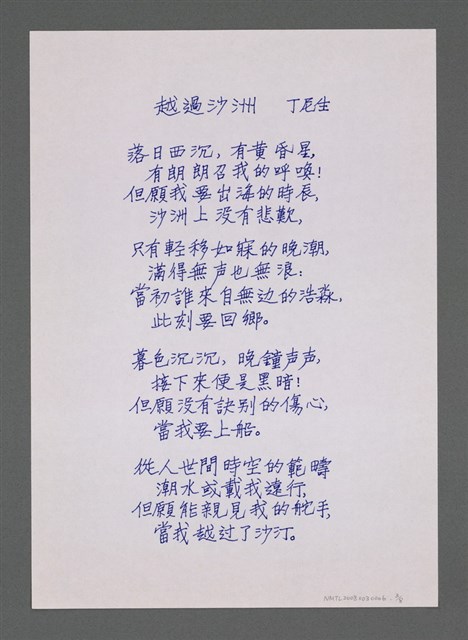 越過沙洲 丁尼生
落日西沉，有黄昏星，
有朗朗召我的呼喚！
但願我要出海的時辰，
沙洲上没有悲歎，
只有輕移如寐的晚潮，
滿得無声也無浪：
當初誰來自無边的浩淼，
此刻要回鄉。
暮色沉沉，晚鐘声声，
接下來便是黑暗！
但願没有訣别的傷心，
當我要上船。
從人世間時空的範疇
潮水或載我遠行，
但願能親見我的舵手，
當我越过了沙汀。